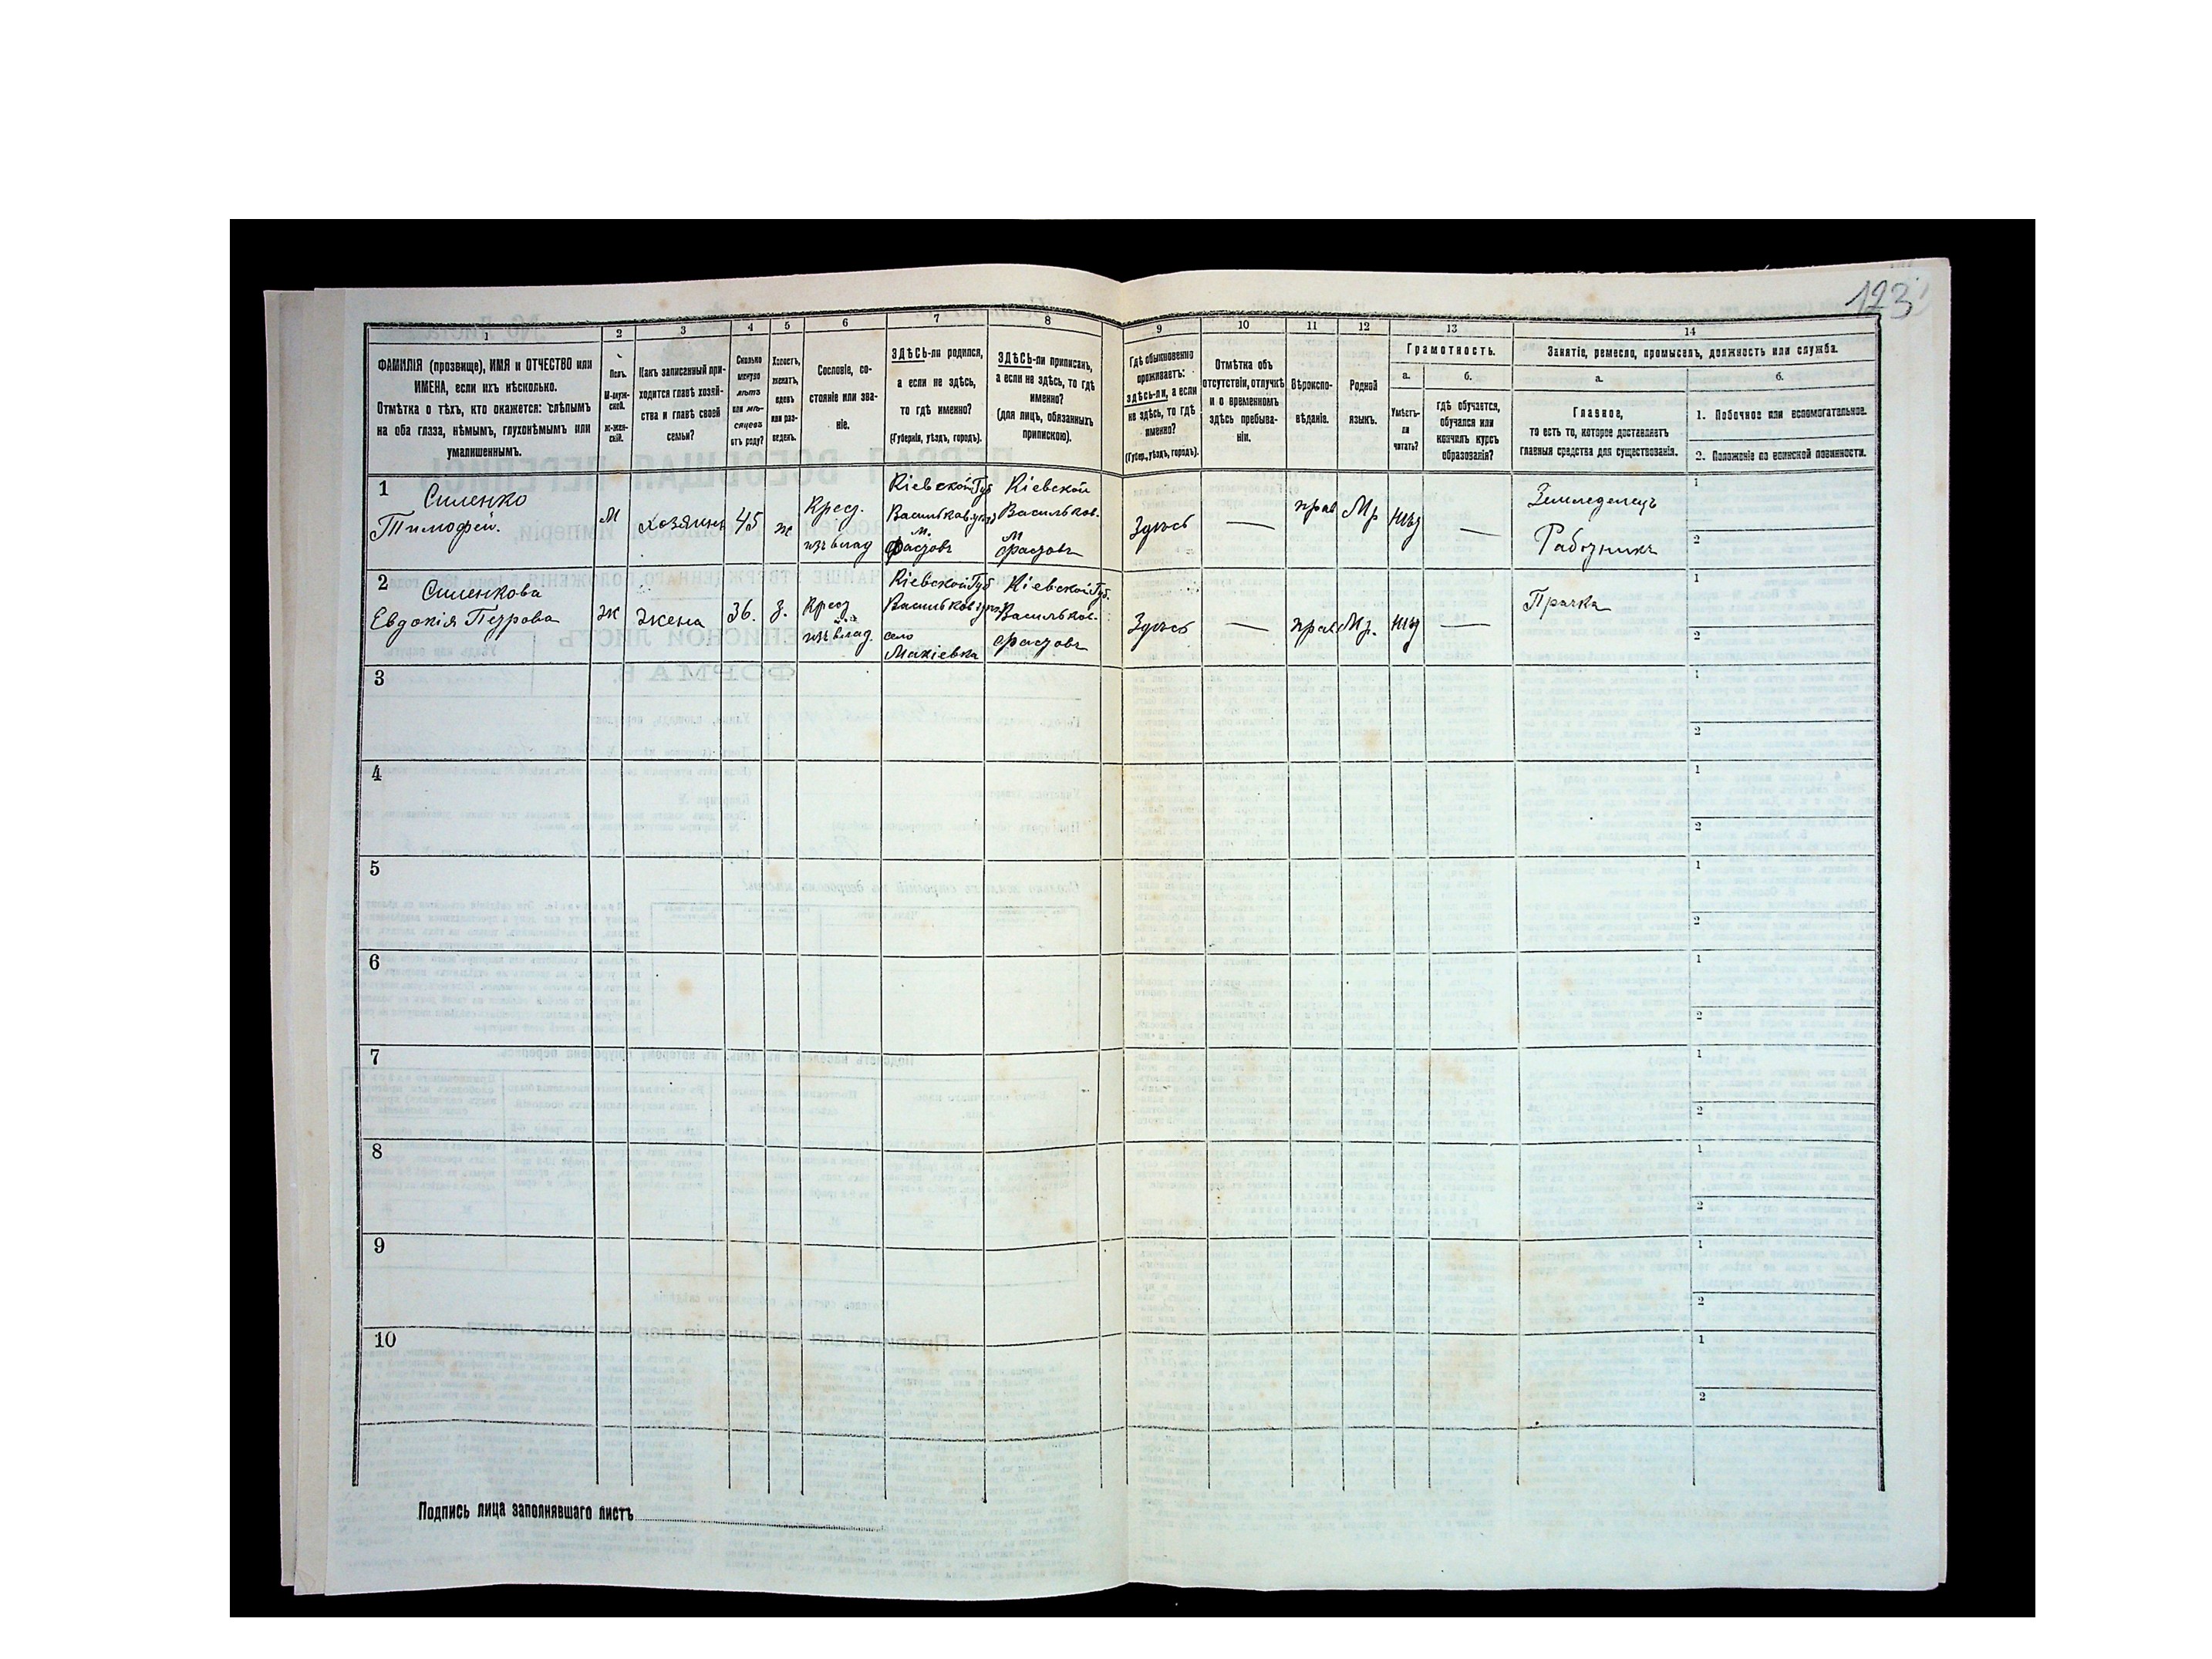 123
1
ФАМИЛІЯ (прозвище), ИМЯ и ОТЧЕСТВО или
ИМЕНА, если ихъ нѣсколько.
Отмѣтка о тѣхъ, кто окажется: слѣпымъ
на оба глаза, нѣмымъ, глухонѣмымъ или
умалишеннымъ.
2
Полъ.
М-муж-
ской.
ж-жен-
скій.
3
Какъ записанный при-
ходится главѣ хозяй-
ства и главѣ своей
семьи?
4
Сколько
минуло
лѣтъ
или мѣ-
сяцевъ
отъ роду?
5
Холостъ,
женатъ,
вдовъ
или раз-
веденъ.
6
Сословіе, со-
стояніе или зва-
ніе.
7
ЗДѢСЬ-ли родился,
а если не здѣсь,
то гдѣ именно?
(Губернія, уѣздъ, городъ).
8
ЗДѢСЬ-ли приписанъ,
а если не здѣсь, то гдѣ
именно?
(для лицъ, обязанныхъ
припискою).
9
Гдѣ обыкновенно
проживаетъ:
здѣсь-ли, а если
не здѣсь, то гдѣ
именно?
(Губер., уѣздъ, городъ).
10
Отмѣтка объ
отсутствіи, отлучкѣ
и о временномъ
здѣсь пребыва-
ніи.
11
Вѣроиспо-
вѣданіе.
12
Родной
языкъ.
13
Грамотность.
а.
Умѣетъ-
ли
читать?
б.
гдѣ обучается,
обучался или
кончилъ курсъ
образованія?
14
Занятіе, ремесло, промыселъ, должность или служба.
а.
Главное,
то есть то, которое доставляетъ
главныя средства для существованія.
б.
1. Побочное или вспомогательное.
2. Положеніе по воинской повинности.
1
Силенко
Тимофей.
М
хозяинъ
45
ж
Крест.
изъ влад
Кіевской Губ
Васильков. уѣзд
м.
Фастовъ
Кіевской
Васильков.
м
Фастовъ
Здѣсь
—
прав
Мр
нѣт
—
Земледелецъ
Работникъ
1
2
2
Силенкова
Евдокія Петрова
ж
жена
36.
з.
Крест
изъ влад.
Кіевской Губ
Васильков уѣзд
село
Макіевка
Кіевской Губ.
Васильков.
Фастовъ
Здѣсь
—
прав
Мр.
нѣт
—
Прачка
1
2
3
1
2
4
1
2
5
1
2
6
1
2
7
1
2
8
1
2
9
1
2
10
1
2
Подпись лица заполнявшаго листъ